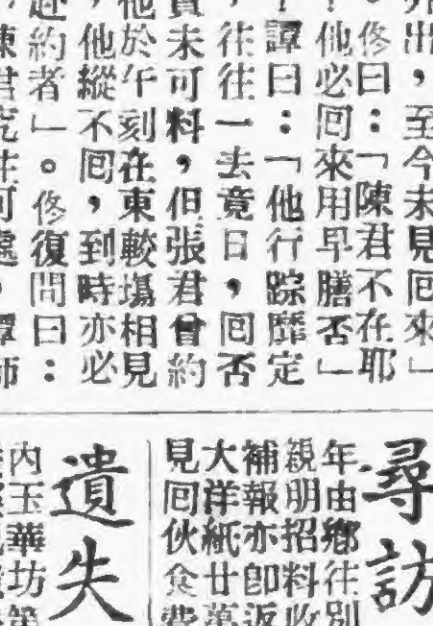 出，至今未見囘來」
。修曰：「陳君不在耶
他必囘來用早膳否」
譚曰：「他行踪靡定
，往往一去竟日，囘否
未可料，但張君曾約
他於午刻在東較塲相見
，他縱不囘，到時亦必
約者」。修復問曰：
尋訪
年由鄉往別
親明招料收
補報亦卽返
大洋紙廿萬
見囘伙食費
遺失
內玉華坊第